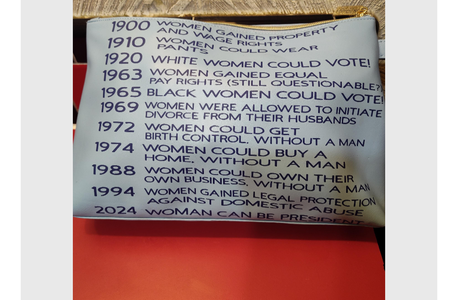 1900 WOMEN GAINED PROPERTY
AND WAGE RIGHTS
1910 WOMEN COULD WEAR
PANTS
1920 WHITE WOMEN COULD VOTE!
1963 WOMEN GAINED EQUAL
PAY RIGHTS (STILL QUESTIONABLE?
1965 BLACK WOMEN COULD VOTE!
1969 WOMEN WERE ALLOWED TO INITIATE
DIVORCE FROM THEIR HUSBANDS
1972 WOMEN COULD GET
BIRTH CONTROL, WITHOUT A MAN
1974 WOMEN COULD BUY A
HOME, WITHOUT A MAN
1988 WOMEN COULD OWN THEIR
OWN BUSINESS, WITHOUT A MAN
1994 WOMEN GAINED LEGAL PROTECTION
AGAINST DOMESTIC ABUSE
2024 WOMAN CAN BE PRESIDENT